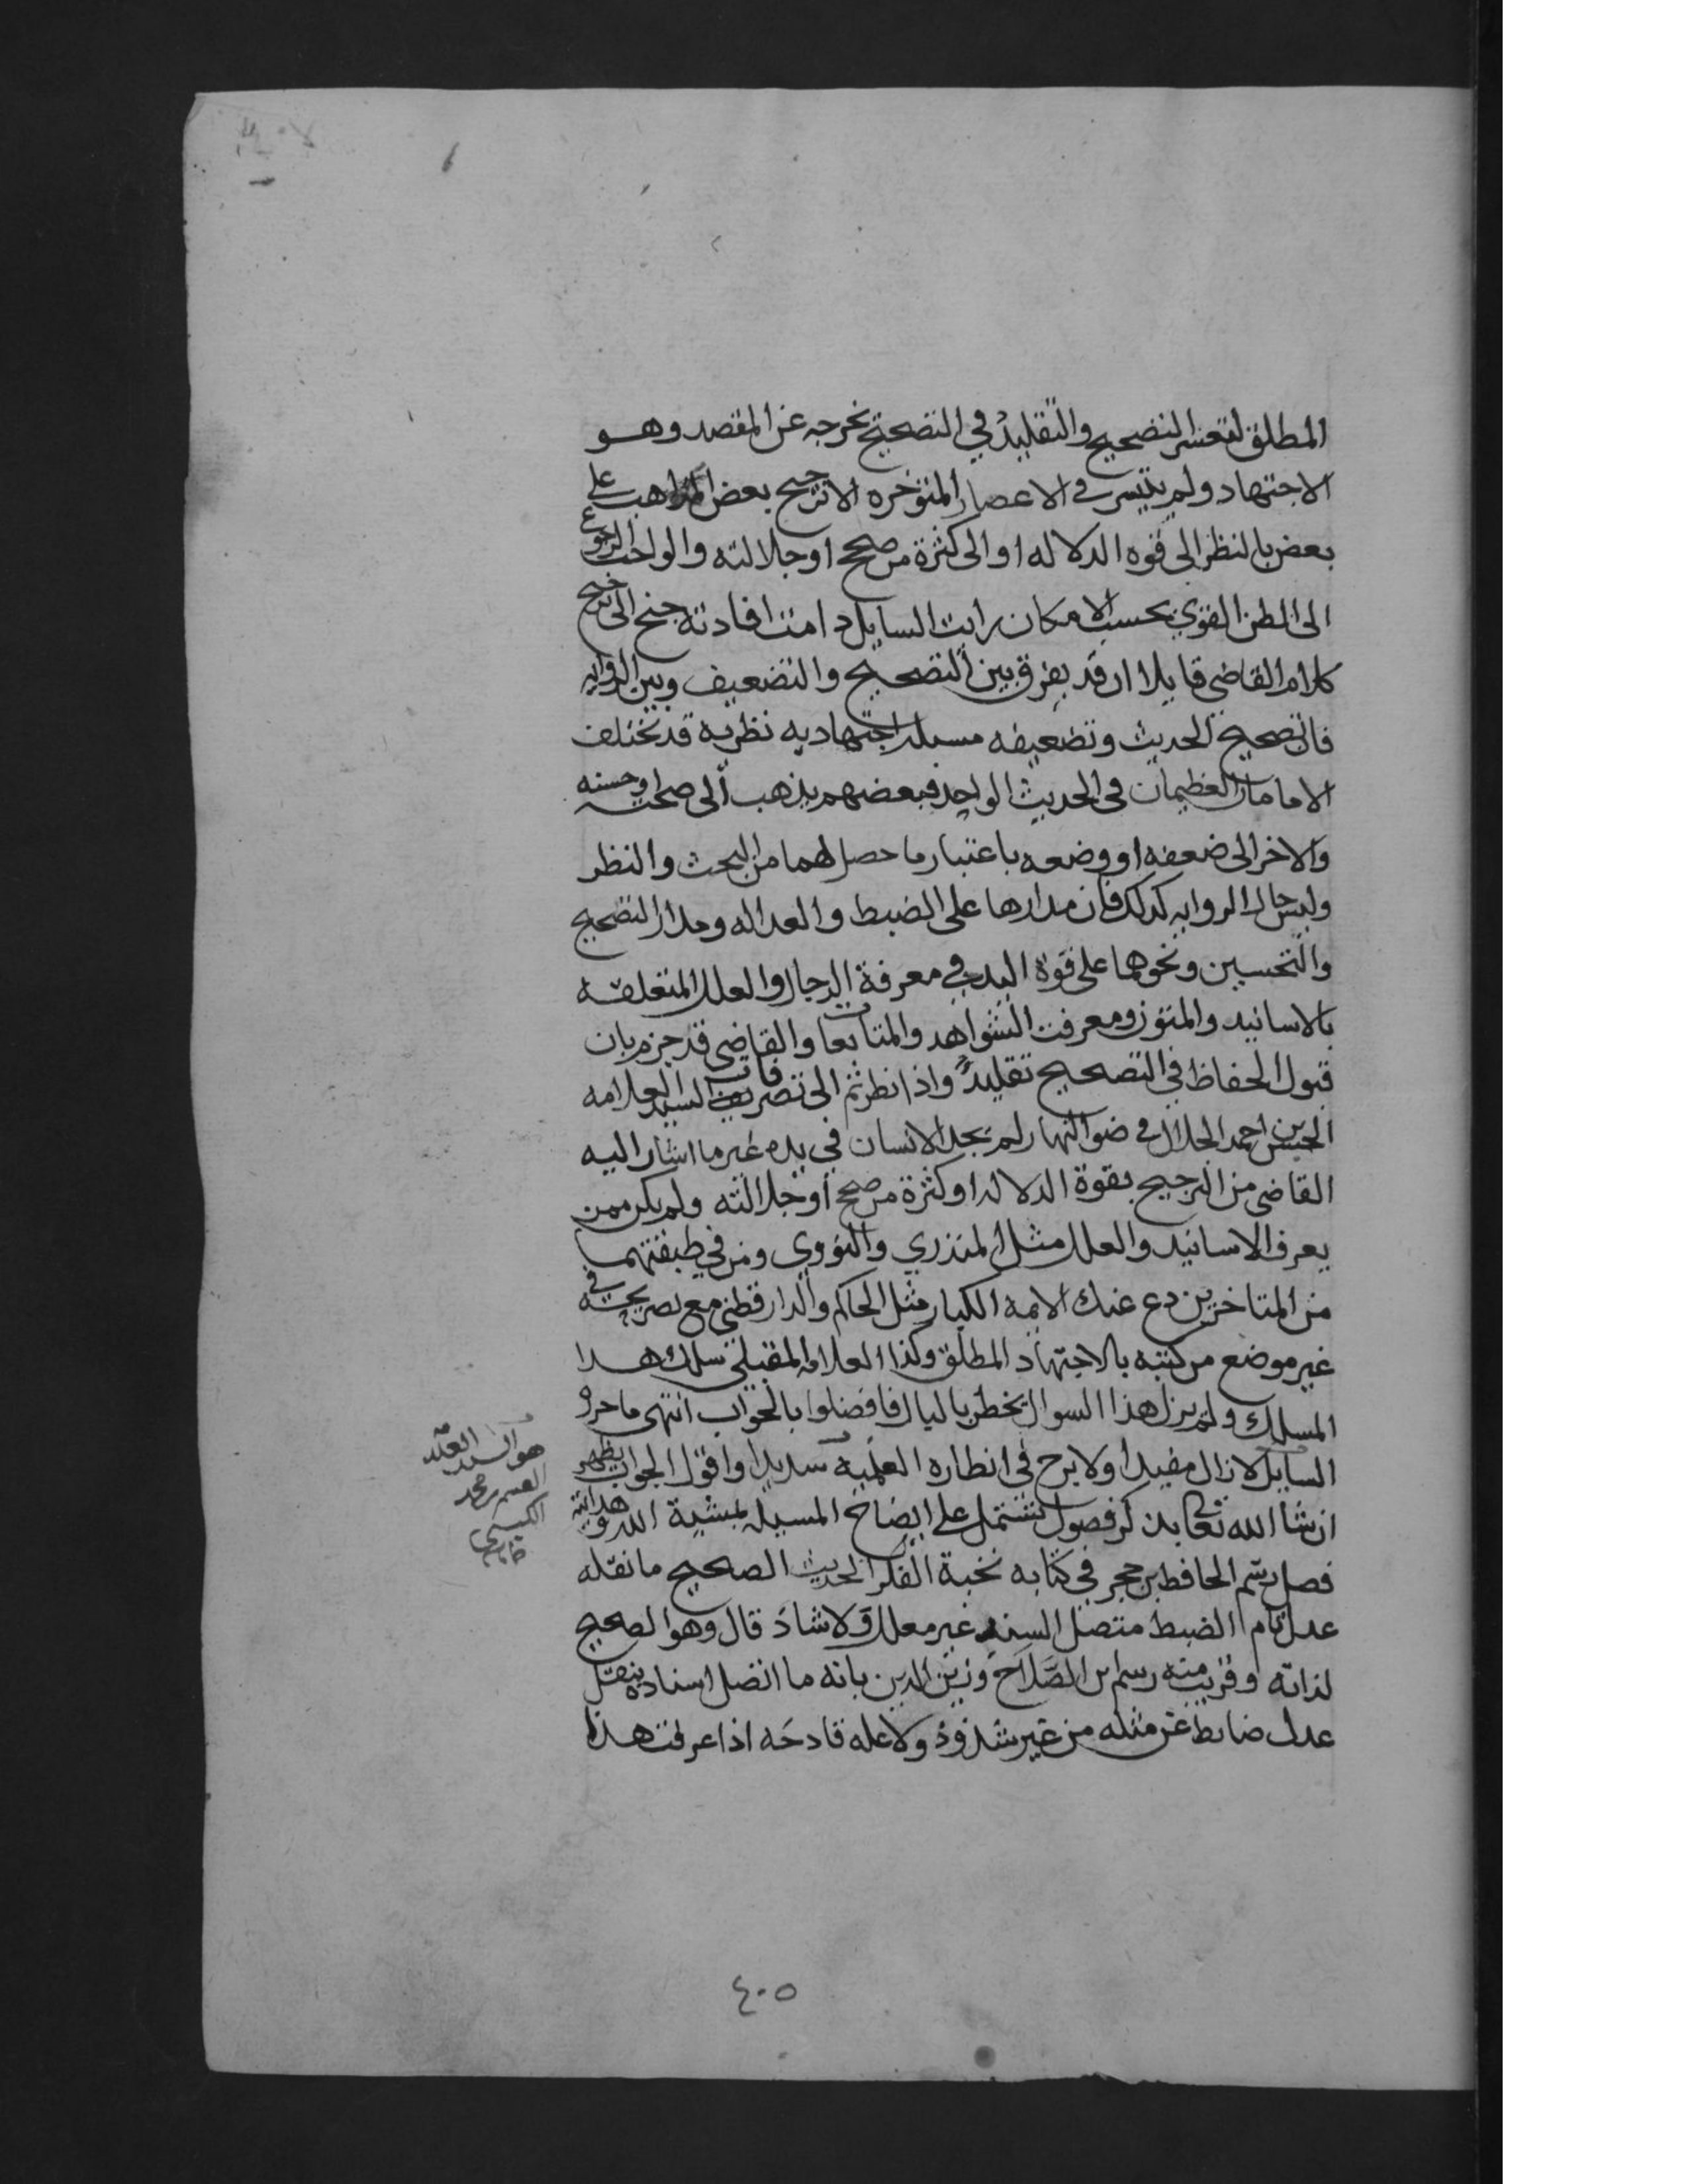 المطلق لتعسر التصحيح والتقليد في التصحيح يخرجه عن المقصد وهو
الاجتهاد ولم يتيسر في الاعصار المتوخره الا ترجيح بعض المذاهب على
بعض بالنظر الى قوه الدلاله او الى كثرة من صحح او جلالته والواجب الرجوع
الى الظن القوي بحسب الامكان رايت السايل دامت افادته جنح الى ترجيح
كلام القاضي قايلا ان قد يفرق بين التصحيح والتضعيف وبين الروايه
فان تصحيح الحديث وتضعيفه مسيله اجتهاديه نظريه قد تختلف
الامامان العظيمان في الحديث الواحد فبعضهم يذهب الى صحته او حسنه
والاخر الى ضعفه او وضعه باعتبار ما حصل لهما من البحث والنظر
وليس حال الروايه كذلك فان مدارها على الضبط والعداله ومدار التصحيح
والتحسين ونحوهما على قوة الهدى في معرفة الرجال والعلل المتعلقه
بالاسانيد والمتون ومعرفت الشواهد والمتابعات والقاضي قد جزم بان
قبول الحفاظ في التصحيح تقليد واذا نظرتم الى تصرفات السيد العلامه
الحسن بن احمد الجلال في ضوالنهار لم يجد الانسان في يده غير ما اشار اليه
القاضي من الترجيح بقوة الدلاله او كثرة من صحح او جلالته ولم يكن ممن
يعرف الاسانيد والعلل مثل المنذري والنووي ومن في طبقتهما
من المتاخرين دع عنك الايمه الكبار مثل الحاكم والدارقطني مع تصريحه في
غير موضع من كتبه بالاجتهاد المطلق وكذا العلامه المقبلي سلك هذا
المسلك ولم يزل هذا السوال يخطر بالبال فافضلوا بالجواب انتهى ما حرره
السايل لازال مفيدا ولا برح في انظاره العلمية سديدا واقول الجواب يظهر
ان شا الله تعالى بذكر فصول تشتمل على ايضاح المسيله بمشية الله وهدايته
فصل رسم الحافظ بن حجر في كتابه نخبة الفكر الحديث الصحيح ما نقله
عدل تام الضبط متصل السند غير معلل ولا شاذ قال وهو الصحيح
لذاته وقريب منه رسم بن الصلاح وزين الدين بانه ما اتصل اسناده بنقل
عدل ضابط عن مثله من غير شذوذ ولا عله قادحه اذا عرفت هذا
هو السيد
القسم بن محمد
الكبسي
٤٠٥